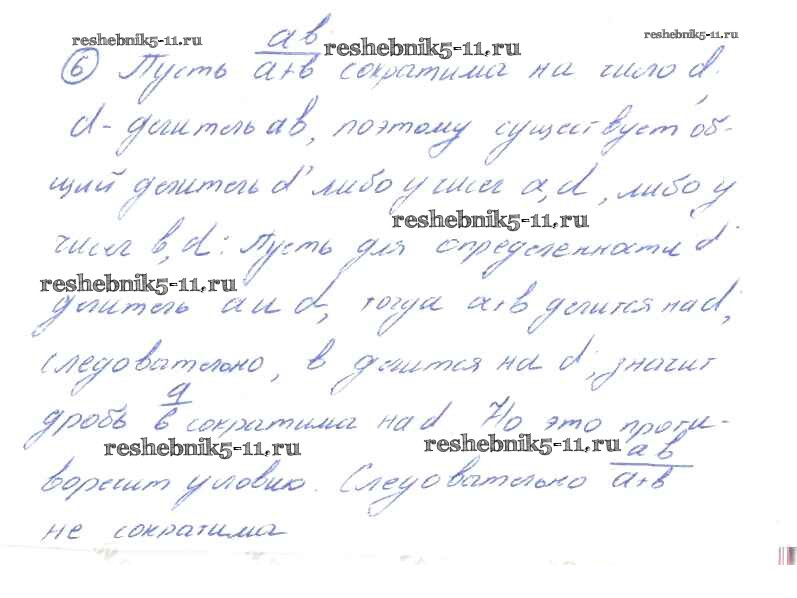 reshebnik5-11.ru
reshebnik5-11.ru
reshebnik5-11.ru
ab
⑥ Пусть a+b сократима на число d,
d - делитель ab, поэтому существует об-
щий делитель d' либо у чисел a, d, либо у
reshebnik5-11.ru
чисел b, d. Пусть для определенности d'
reshebnik5-11.ru
делитель a и d, тогда a+b делится на d',
следовательно, b делится на d', значит
дробь a/b сократима на d'. Но это проти-
reshebnik5-11.ru
reshebnik5-11.ru
воречит условию. Следовательно ab/a+b
не сократима